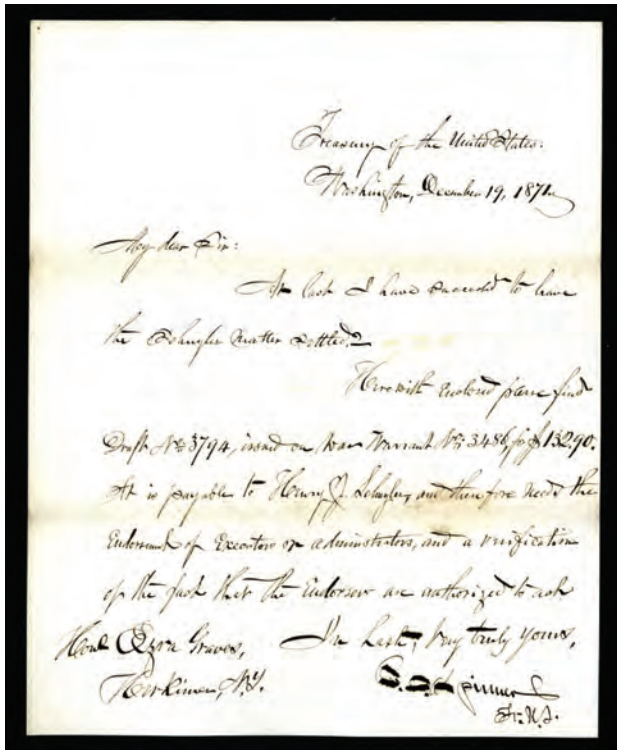 Treasury of the United States:
Washington, December 19, 1871.
My dear Sir:
At last I have succeeded to have
the Schuyler matter settled.
Herewith enclosed please find
Draft No 3794, issued on War Warrant No 3486, for $132.90.
It is payable to Henry J. Schuyler, and therefore needs the
Endorsement of Executors or administrators, and a verification
of the fact that the Endorsers are authorized to
Honl Ezra Graves, In haste, Very truly yours,
Herkimer, N.Y. Spinner
Tr. U.S.